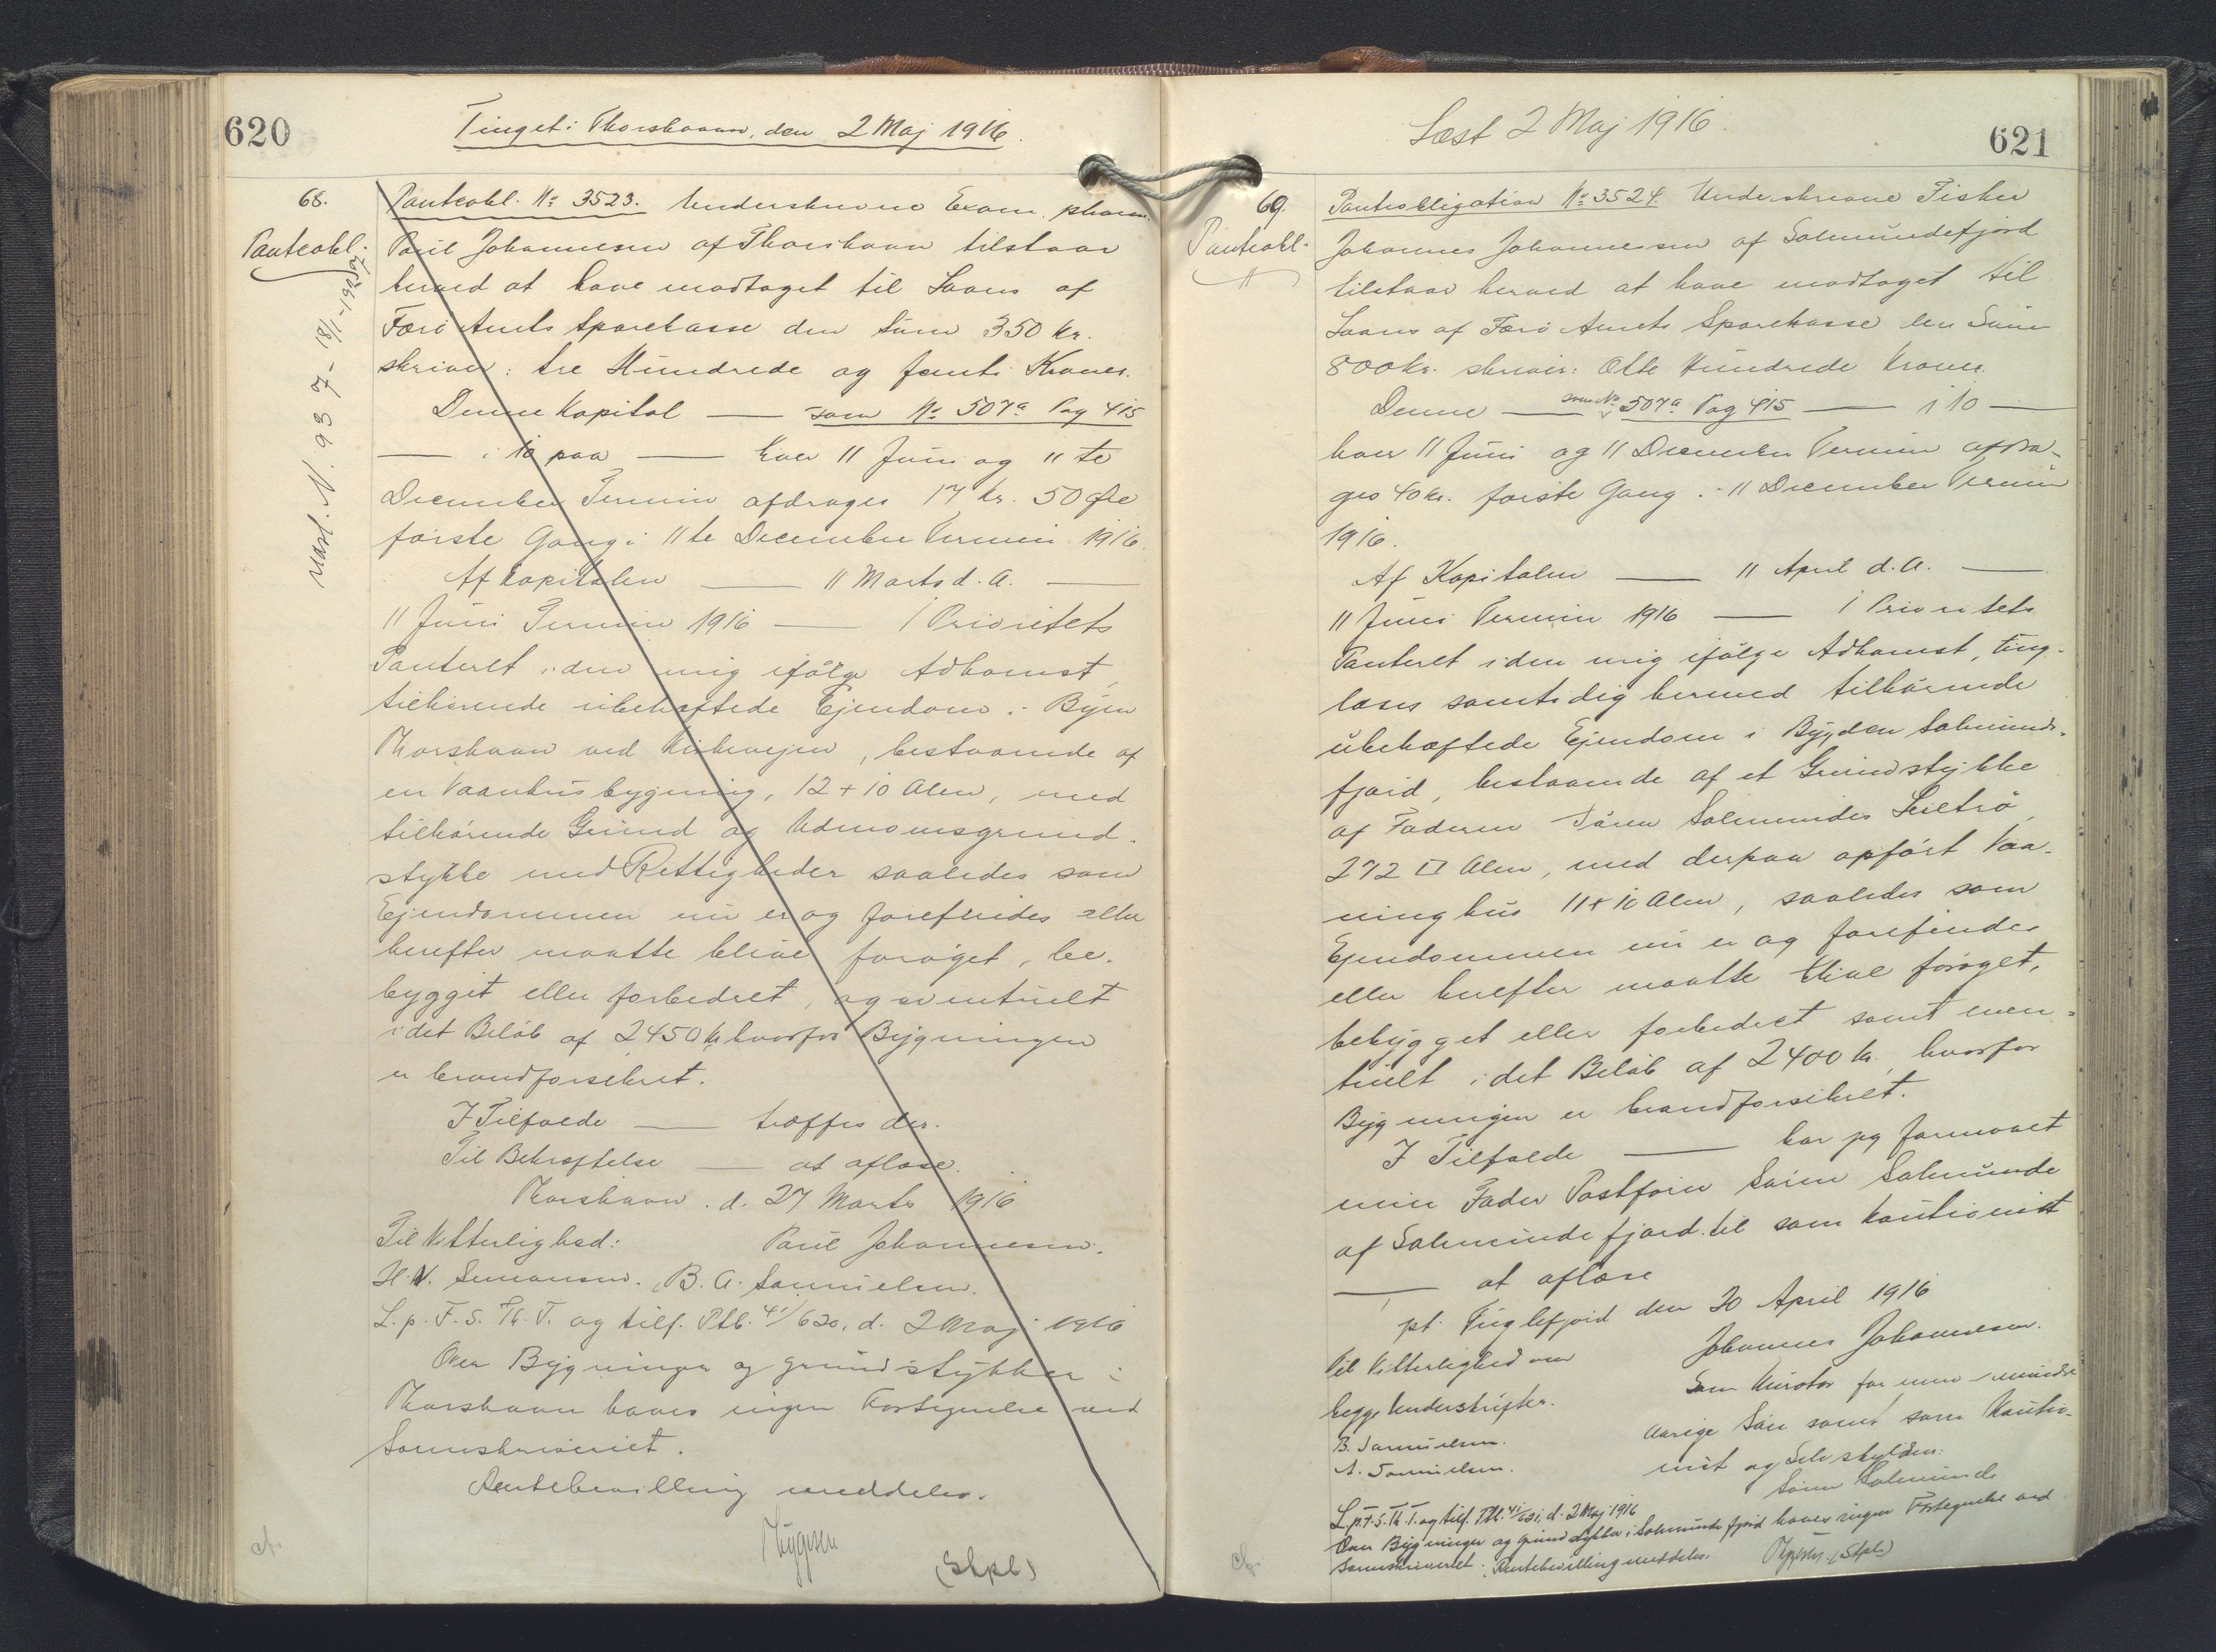 620
Tinget i Thorshavn, den 2 Maj 1916.
68.
Panteobl.
Matr. N. 937 - 18/1-192
Panteobl. No 3523. Underskrevne Exam. pharm.
Poul Johannesen af Thorshavn tilstaar
herved at have modtaget til Laans af
Færø Amts Sparekasse den Sum 350 kr.
skriver: tre Hundrede og femti Kroner.
Denne Kapital — som No 507a Pag 415
— i 10 paa — hver 11 Juni og 11te
December Termin afdrages 17 kr. 50 Øre
første Gang i 11te December Termin 1916.
Af Kapitalen — 11 Marts d. A. —
11 Juni Termin 1916 — 1 Prioritets
Panteret i den mig ifølge Adkomst,
tilhørende ubehæftede Ejendom i Byen
Thorshavn ved Kirkevejen, bestaaende af
en Vaanhusbygning, 12 + 10 Alen, med
tilhørende Grund og Udmomsgrund-
stykke med Rettigheder saaledes som
Ejendommen nu er og forefindes eller
herefter maatte blive forøget, be-
bygget eller forbedret, og eventuelt
i det Beløb af 2450 kr hvorfor Bygningen
er brandforsikret.
I Tilfælde — træffes der.
Til Bekræftelse — at aflæse.
Thorshavn. d. 27 Marts 1916
Til Vitterlighed: Poul Johannesen.
H. N. Simonsen. B. A. Samuelsen.
L. p. F. S. Th. T. og tilf. Ptb. 41/620. d. 2 Maj 1916
Over Bygninger og Grundstykker i
Thorshavn haves ingen Fortegnelse ved
Sorenskriveriet.
Rentebevilling meddeles.
(Stpl)
Læst 2 Maj 1916.
621
69.
Panteobl.
Panteobligation No 3524. Underskrevne Fisker
Johannes Johannesen af Salmundefjord
tilstaar herved at have modtaget til
Laans af Færø Amts Sparekasse den Sum
800 kr. skriver: Otte Hundrede Kroner.
Denne — som No 507a Pag 415 — i 10 —
hver 11 Juni og 11 December Termin afdra-
ges 40 kr. første Gang i 11 December Termin
1916.
Af Kapitalen — 11 April d. A. —
11 Juni Termin 1916 — 1 Prioritets
Panteret i den mig ifølge Adkomst, ting-
læses samtidig hermed tilhørende
ubehæftede Ejendom i Bygden Salmunde-
fjord, bestaaende af et Grundstykke
af Faderen Søren Salmundes
272 □ Alen, med derpaa opført Vaa-
ninghus 11 + 10 Alen, saaledes som
Ejendommen nu er og forefindes
eller herefter maatte blive forøget,
bebygget eller forbedret samt even-
tuelt i det Beløb af 2400 kr. hvorfor
Bygningen er brandforsikret.
I Tilfælde — har jeg formaaet
min Fader Postfører Søren Salmunde
af Salmundefjord til som Kautionist
— at aflæse
pt. Fuglefjord den 20 April 1916
Til Vitterlighed om Johannes Johannesen.
begge Underskrifter. Som Kurator for min mindre
B. Samuelsen. aarige Søn samt som Kautio-
A. Samuelsen. nist og Selvskyldner:
Søren Salmunde
L. p. F. S. Th. T. og tilf. Ptb. 41/621. d. 2 Maj 1916
Over Bygninger og Grundstykker i Salmundefjord haves ingen Fortegnelse ved
Sorenskriveriet. Rentebevilling meddeles. (Stpl.)